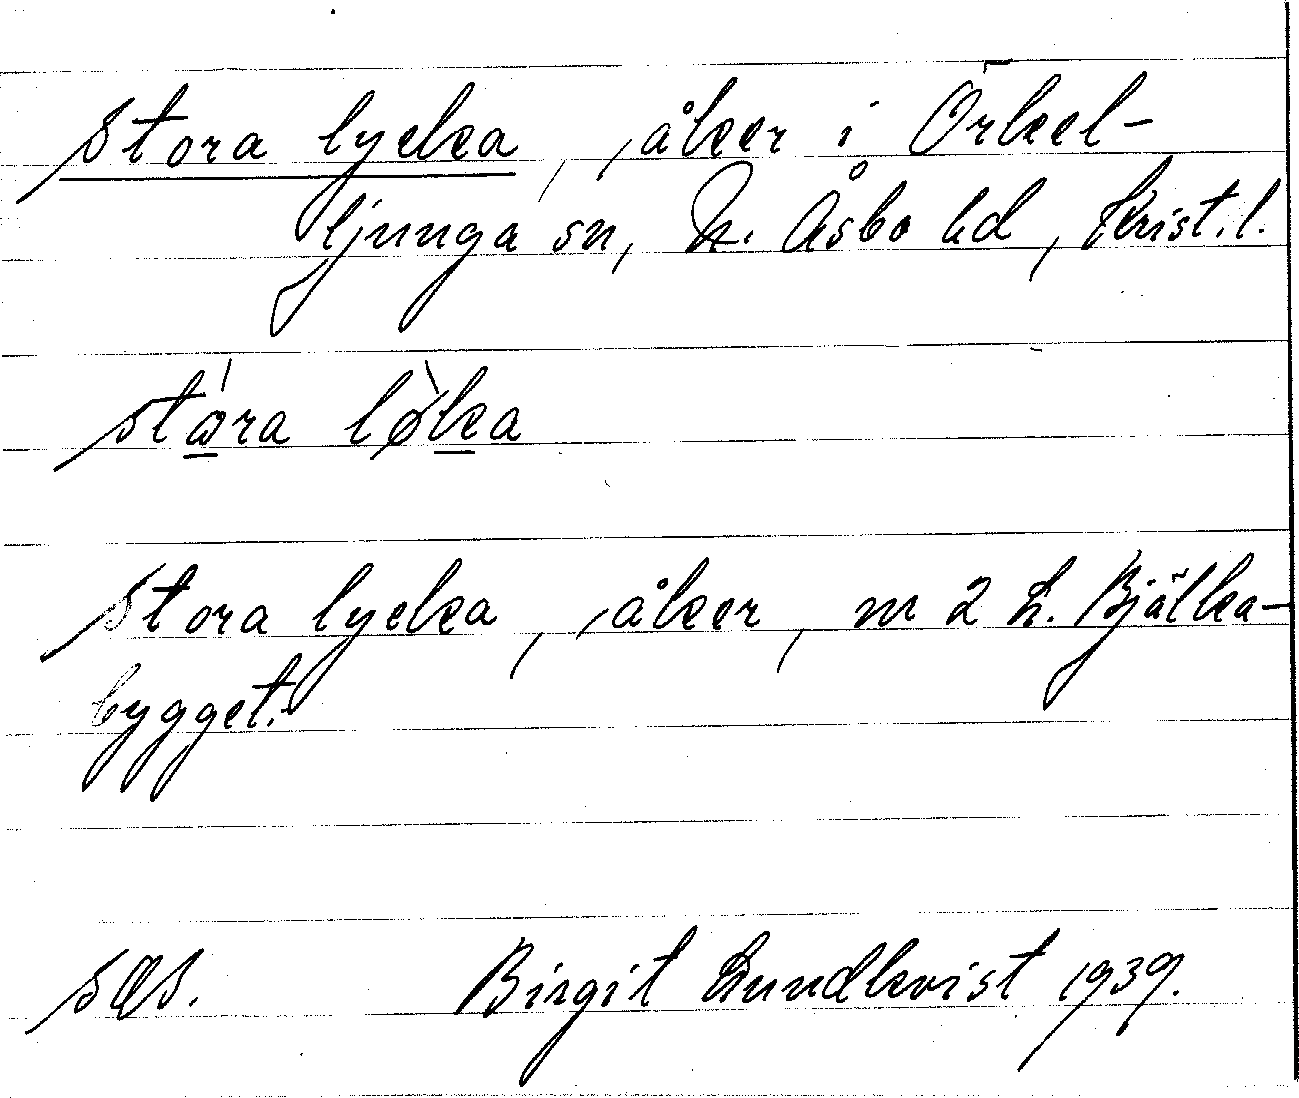 Stora lycka, åker i Örkel-
ljunga sn, N. Åsbo hd, Krist. l.
stora løka
Stora lycka, åker, nr 2 L. Bjälka-
bygget.
Birgit Lundkvist 1939.